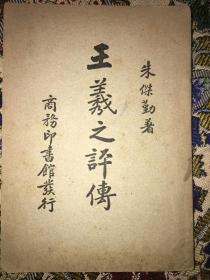 朱傑勤著
王羲之評傳
商務印書館發行